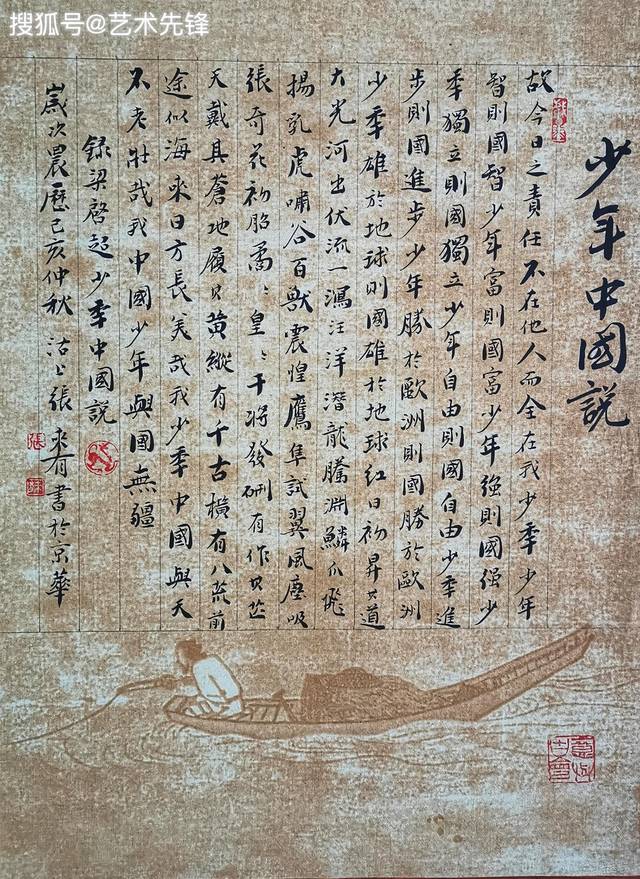 搜狐号@艺术先锋
少年中國説
故今日之責任不在他人而全在我少年少年
智則國智少年富則國富少年強則國强少
年獨立則國獨立少年自由則國自由少年進
步則國進步少年勝於歐洲則國勝於歐洲
少年雄於地球則國雄於地球紅日初昇其道
大光河出伏流一瀉汪洋潛龍騰淵鱗爪飛
揚乳虎嘯谷百獸震惶鷹隼試翼風塵吸
張奇花初胎矞〻皇〻干將發硎有作其芒
天戴其蒼地履其黃縱有千古橫有八荒前
途似海來日方長美哉我少年中國與天
不老壯哉我中國少年與國無疆
錄梁啓超少年中國説
歲次農歷己亥仲秋沽上張來有書於京華